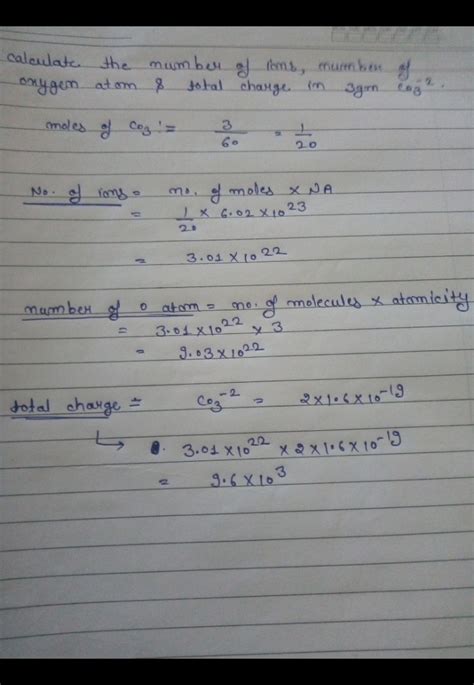 calculate the number of ions, number of
oxygen atom & total charge in 3gm CO3^-2.
moles of CO3 := 3/60 = 1/20
No. of ions = no. of moles × NA
= 1/20 × 6.02 × 10^23
= 3.01 × 10^22
number of O atom = no. of molecules × atomicity
= 3.01 × 10^22 × 3
= 9.03 × 10^22
total charge = CO3^-2 = 2×1.6×10^-19
↳ 3.01 × 10^22 × 2 × 1.6 × 10^-19
= 9.6 × 10^3